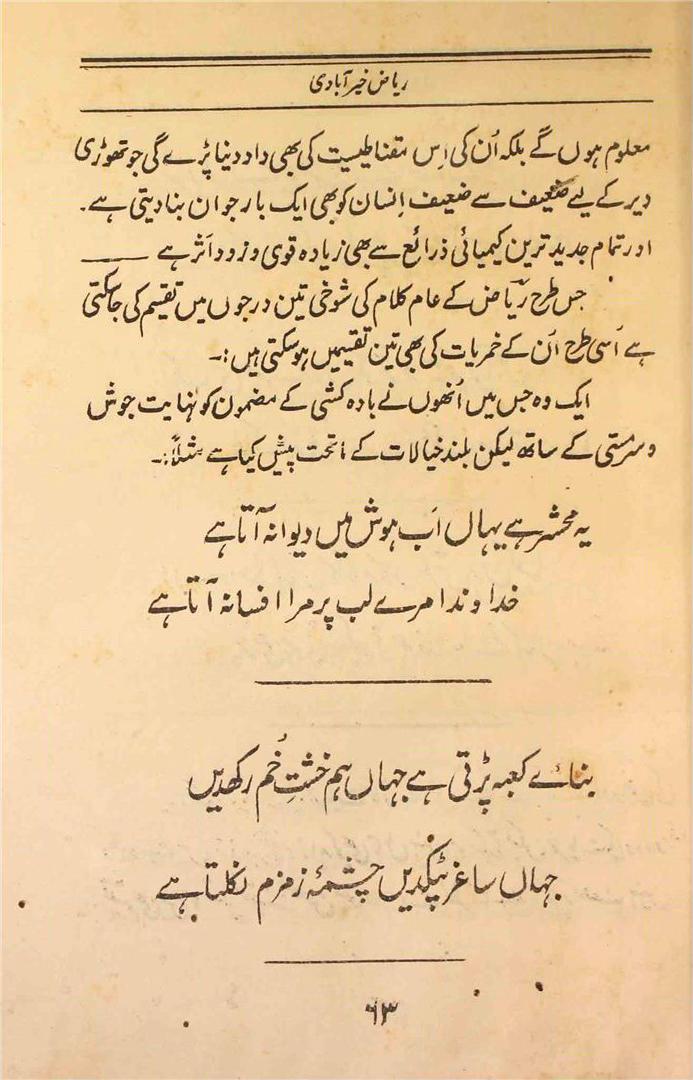 ریاض خیرآبادی
معلوم ہوں گے بلکہ اُن کی اِس مقناطیسیت کی بھی داد دینا پڑے گی جو تھوڑی
دیر کے لیے ضعیف سے ضعیف اِنسان کو بھی ایک بار جوان بنا دیتی ہے۔
اور تمام جدید ترین کیمیائی ذرائع سے بھی زیادہ قوی و زود اَثر ہے ــــــــ
جس طرح ریاؔض کے عام کلام کی شوخی تین درجوں میں تقسیم کی جا سکتی
ہے اُسی طرح اُن کے خمریات کی بھی تین تقسیمیں ہو سکتی ہیں :۔
ایک وہ جس میں اُنھوں نے بادہ کشی کے مضمون کو نہایت جوش
و سرمستی کے ساتھ لیکن بلند خیالات کے ماتحت پیش کیا ہے مثلاً :۔
یہ محشر ہے یہاں اَب ہوش میں دیوانہ آتا ہے
خداوندا مرے لب پر مرا افسانہ آتا ہے
بنائے کعبہ پڑتی ہے جہاں ہم خشتِ خُم رکھدیں
جہاں ساغر پٹکدیں چشمۂ زمزم نکلتا ہے
۶۳